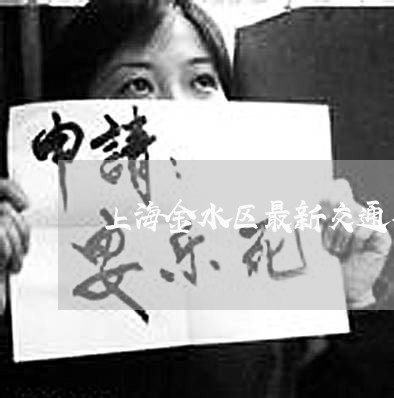 申請：
上海金水区最新交通
安乐死